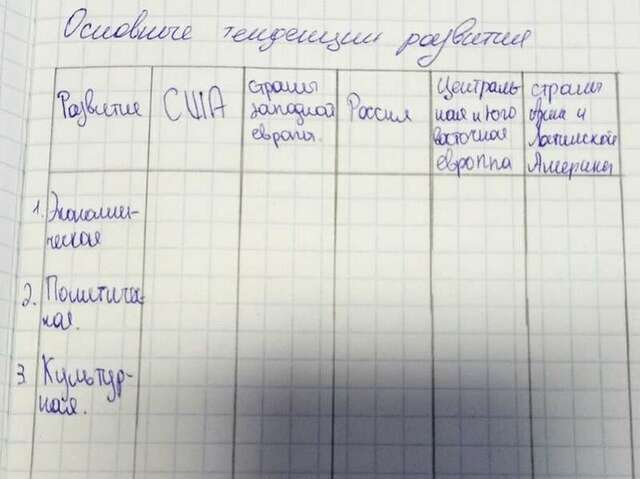 Основные тенденции развития
Развитие
США
страны
западной
европы.
Россия
Централь
ная и Юго
восточная
европпа
страны
Азии и
Латинской
Америки
1. Экономи-
ческая
2. Политиче-
кая.
3. Культур-
ная.